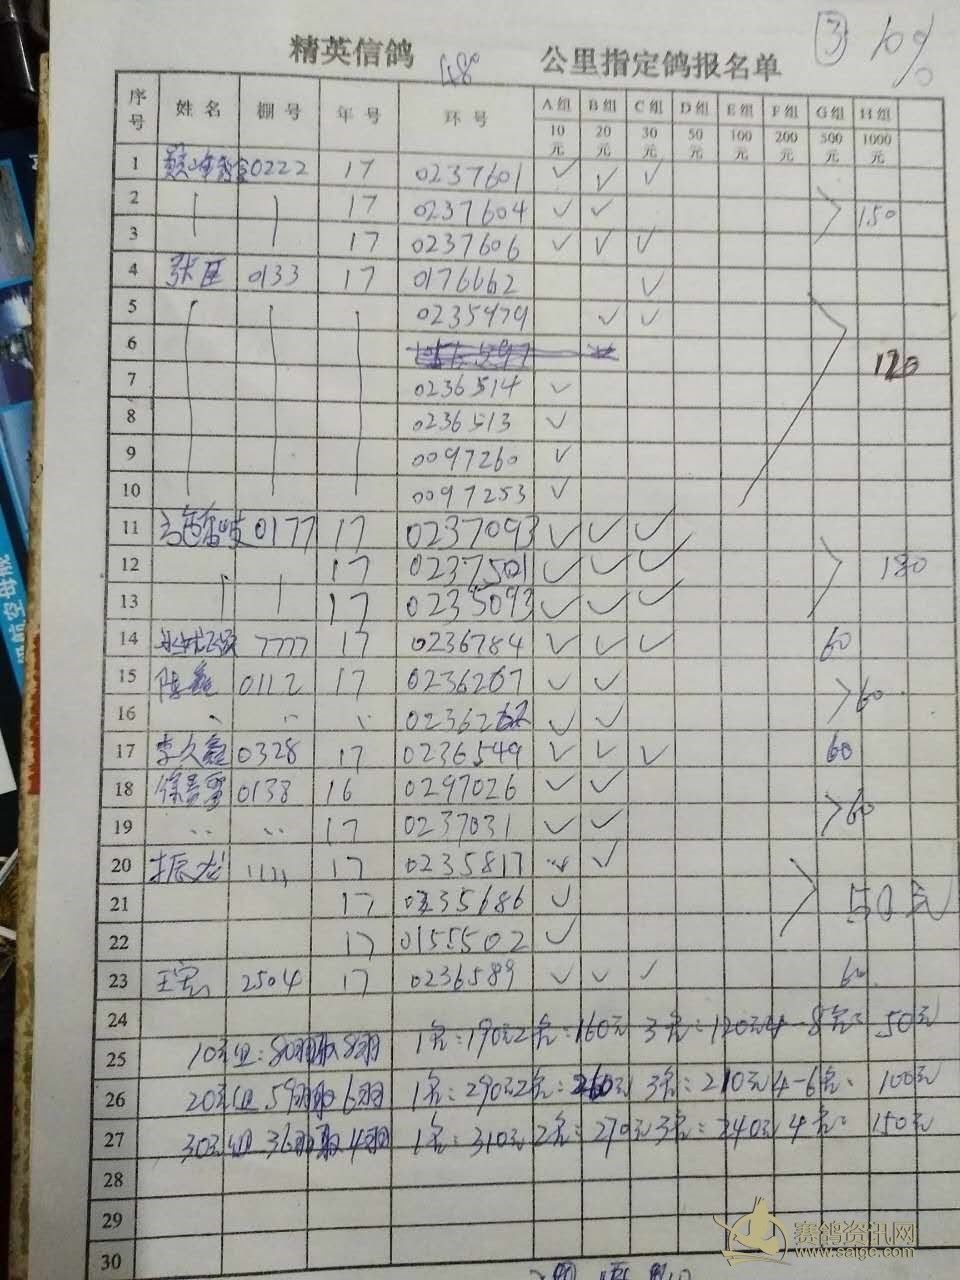 ③ 10%
精英信鸽 公里指定鸽报名单
序号 姓名 棚号 年号 环号 A组 B组 C组 D组 E组 F组 G组 H组
10元 20元 30元 50元 100元 200元 500元 1000元
1 0222 17 0237601 ✓ ✓ ✓
2 17 0237604 ✓ ✓ 150
3 17 0237606 ✓ ✓ ✓
4 0133 17 0176662 ✓
5 0235979 ✓ ✓
6 120
7 0236514 ✓
8 0236513 ✓
9 0097260 ✓
10 0097253 ✓
11 0177 17 0237093 ✓ ✓ ✓
12 17 0237501 ✓ ✓ ✓ 180
13 17 0235093 ✓ ✓ ✓
14 7777 17 0236784 ✓ ✓ ✓ 60
15 陈鑫 0112 17 0236207 ✓ ✓ 60
16 〃 〃 〃 ✓ ✓
17 李久鑫 0328 17 0236549 ✓ ✓ ✓ 60
18 0138 16 0297026 ✓ ✓
19 〃 〃 17 0237031 ✓ ✓ 60
20 振龙 1111 17 0235817 ✓ ✓
21 17 0235686 ✓ 50元
22 17 0155502 ✓
23 2504 17 0236589 ✓ ✓ ✓ 60
24
25 10元组:80羽取8羽 1名:190元 2名:160元 3名:120元 4-8名: 50元
26 20元组 59羽取6羽 1名:290元 2名:260元 3名:210元 4-6名: 100元
27 30元组 36羽取4羽 1名:310元 2名:270元 3名:240元 4名: 150元
28
29
30
赛鸽资讯网
www.saige.com